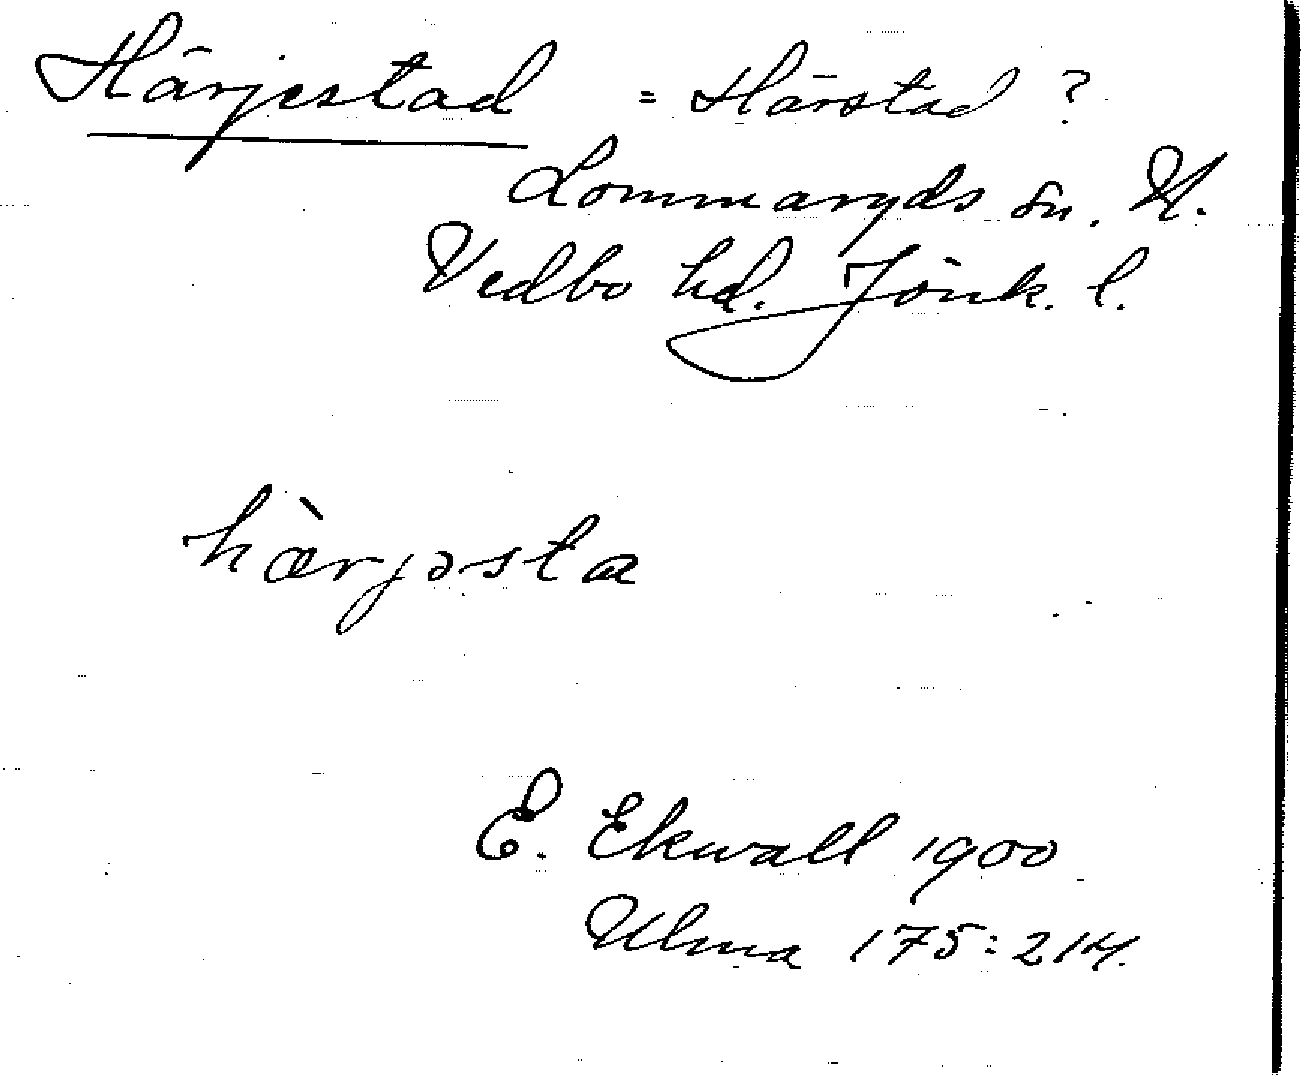 Härjestad = Härstad ?
Lommaryds sn. N.
Vedbo hd. Jönk. l.
hæ̀rjəsta
E. Ekwall 1900
Ulma 175:214.